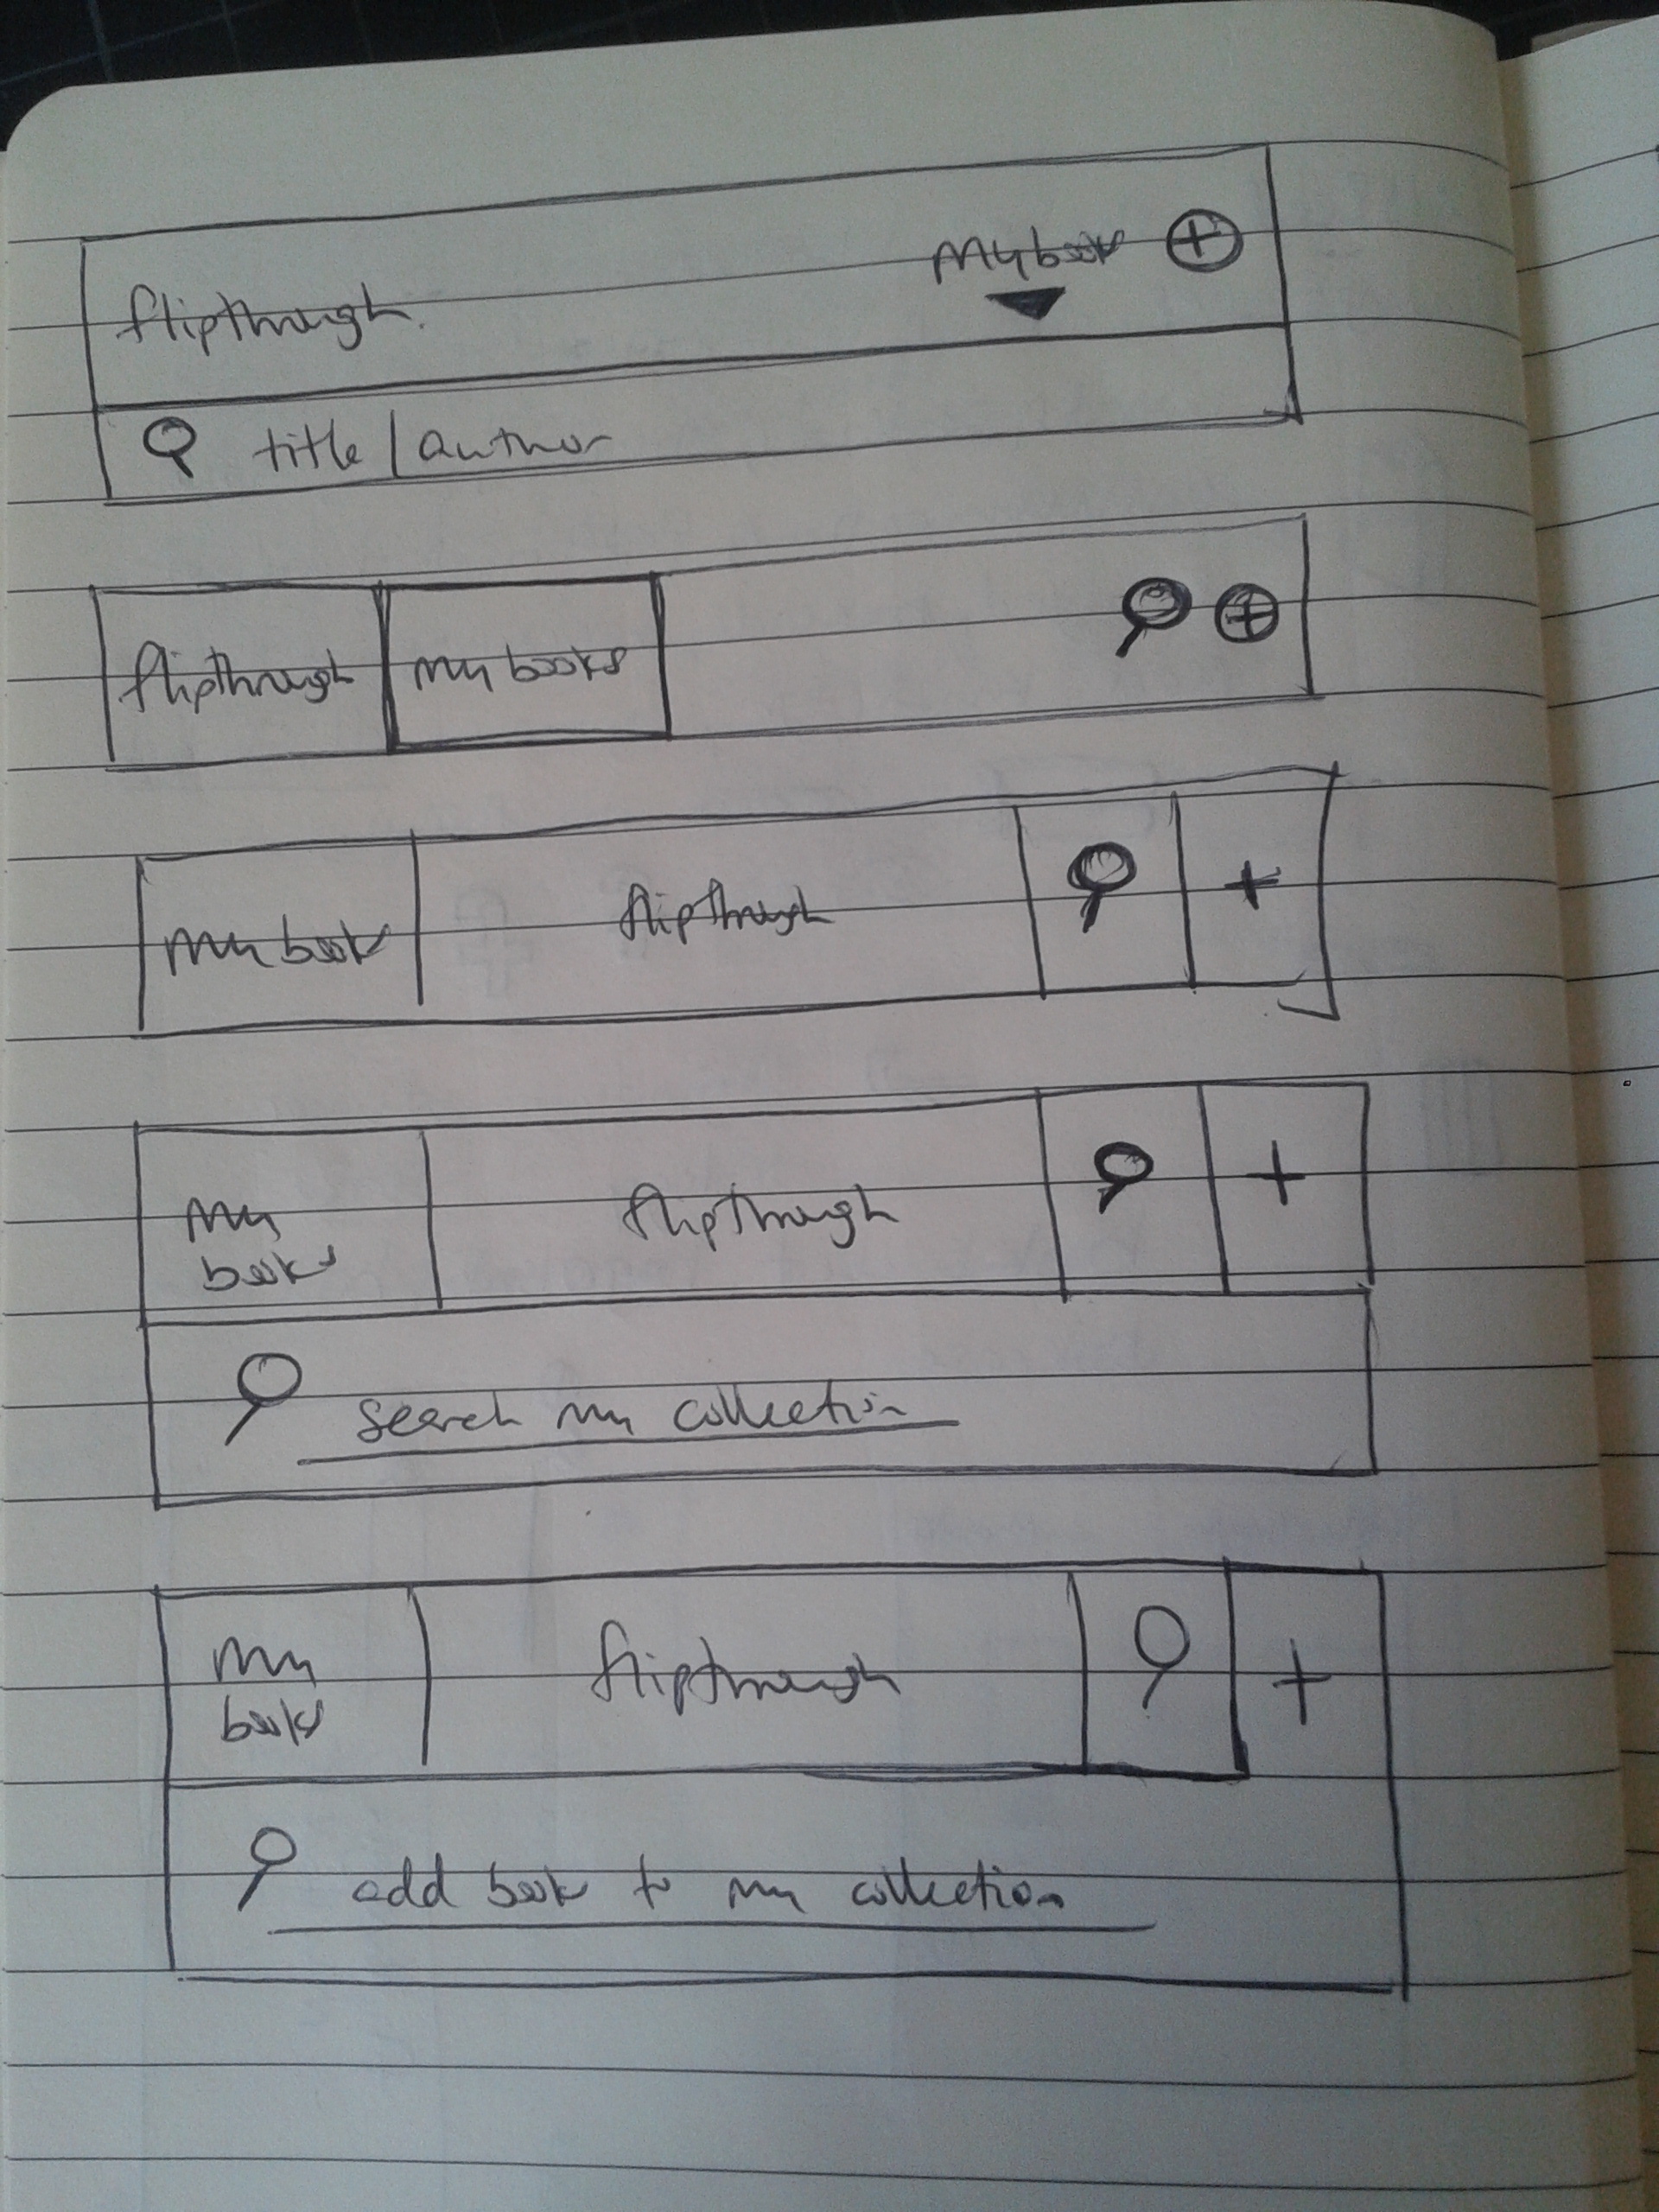 flipthrough.
My books
title / author
flipthrough
my books
+
my books
flipthrough
+
my
books
flipthrough
+
search my collection
my
books
flipthrough
+
add book to my collection